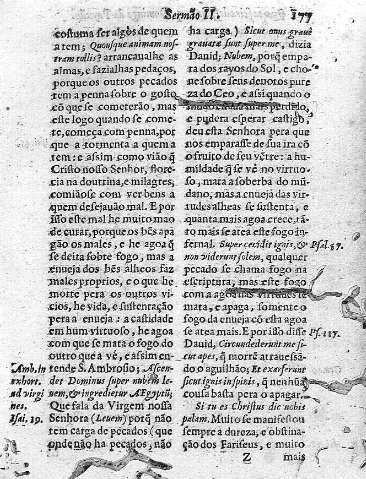 Sermão II. 177
costuma ser algòs de quem
a tem; Quousque animam nos-
tram tollis? arrancavalhe as
almas, e fazialhas pedaços,
porque os outros pecados
tem a penna sobre o gosto
cõ que se cometerão, mas
este logo quando se come-
te, começa com penna, por
que a tormenta a quem a
tem: e assim como vião q̃
Cristo nosso Senhor, flore-
cia na doutrina, e milagres,
comiãose com ver bens a
quem desejauão mal. E por
isso este mal he muito mao
de curar, porque os bẽs apa-
gão os males, e he agoa q̃
se deita sobre fogo, mas a
enueja dos bẽs alheos faz
males proprios, e o que he
morte pera os outros vi-
cios, he vida, e sustentação
pera a enueja: a castidade
em hum virtuoso, he agoa
com que se mata o fogo do
outro que a vè, e assim en-
tende S. Ambrosio; Ascen-
det Dominus super nubem le-
uem, & ingredietur Ægyptũ;
Que fala da Virgem nossa
Senhora (Leuem) porq̃ não
tem carga de pecados (que
onde não ha pecados, não
Amb. in
exhort.
ad virgi
nes.
Isai. 19.
ha carga.) Sicut onus graue
grauatæ sunt super me, dizia
Dauid; Nubem, porq̃ empa-
ra dos rayos do Sol, e cho-
ue sobre os seus deuotos pure
za do Ceo, e assi quando o
mundo estaua mais perdido,
e pudera esperar castigo,
deu esta Senhora pera que
nos emparasse de sua ira cõ
o fruito de seu vẽtre: a hu-
mildade q̃ se vè no virtuo-
so, mata a soberba do mũ-
dano, mas a enueja das vir-
tudes alheas se sustenta, e
quanta mais agoa crece, tã-
to mais se atea este fogo in-
fernal. Super cecidit ignis, &
non viderunt solem, qualquer
pecado se chama fogo na
escriptura, mas este fogo
com a agoa das virtudes se
mata, e apaga, somente o
fogo da enueja cõ esta agoa
se atea mais. E por isso disse
Dauid, Circundederunt me si-
cut apes, q̃ morrẽ atrauessã-
do o aguilhão; Et exarserunt
sicut ignis in spinis, q̃ nenhũa
cousa basta pera o apagar.
Si tu es Christus dic nobis
palam. Muito se manifestou
sempre a dureza, e obstina-
ção dos Fariseus, e muito
Psal. 57.
Ps. 117.
Z mais